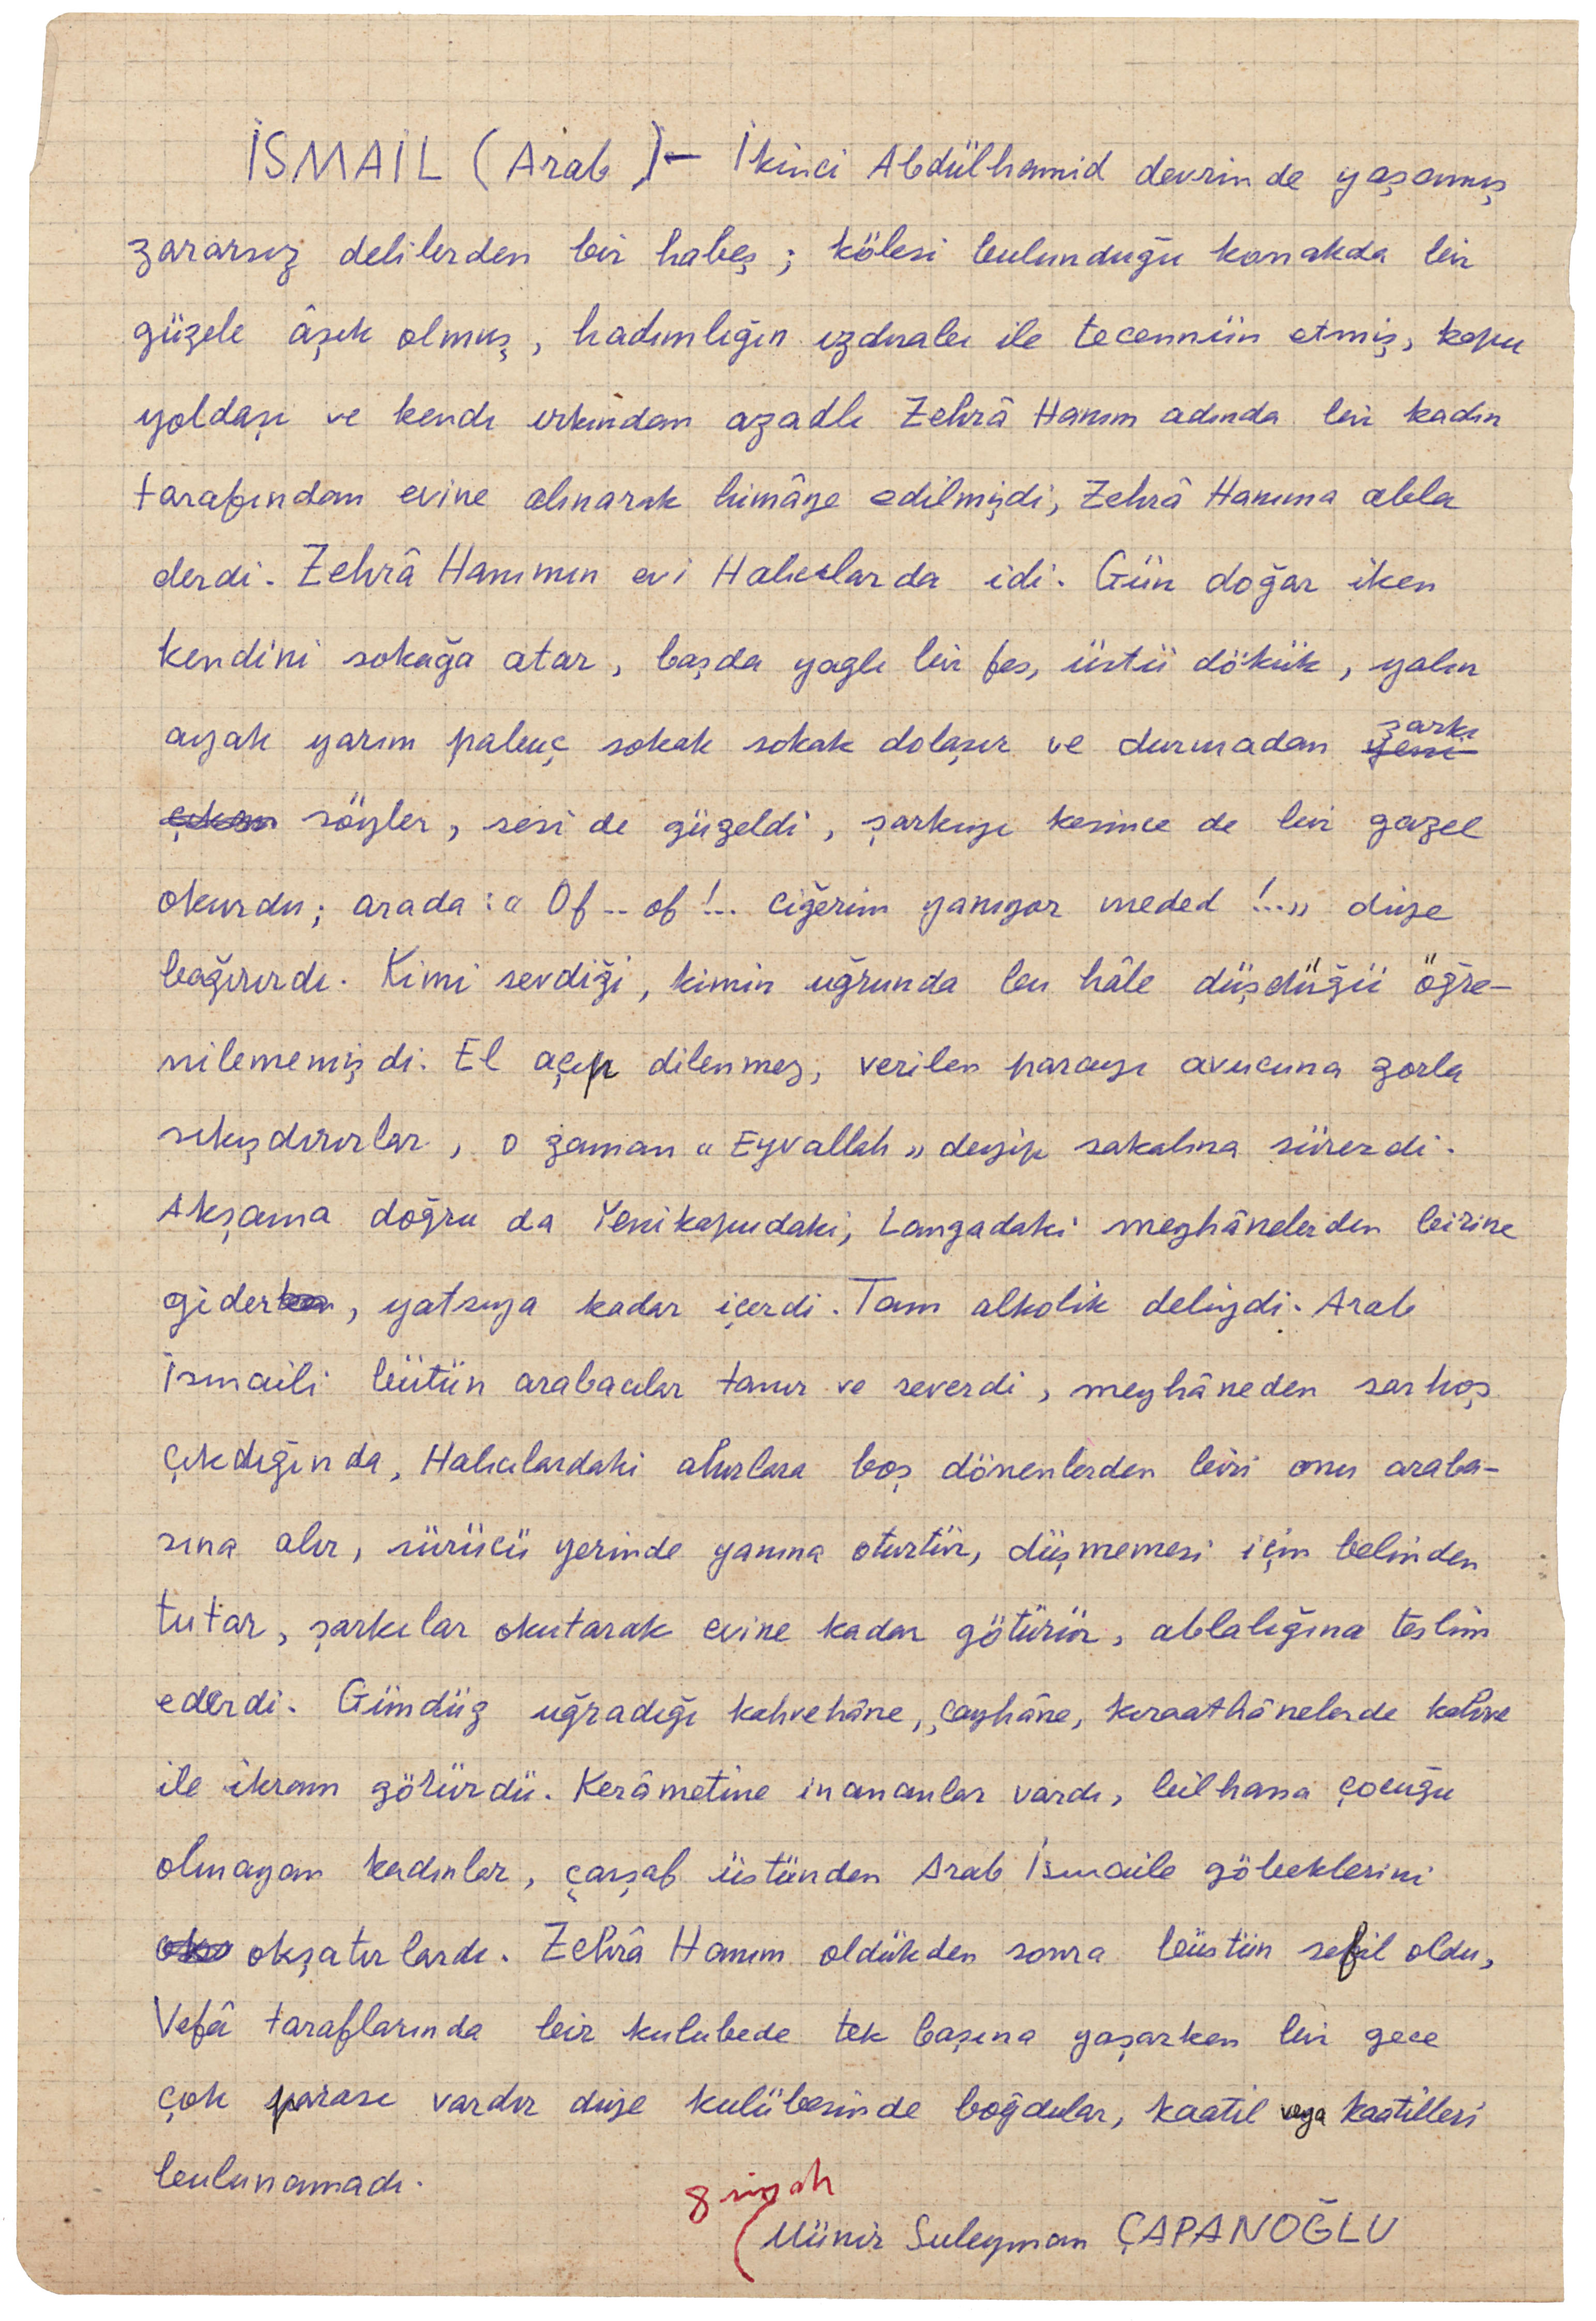 İSMAİL (Arab) — İkinci Abdülhamid devrinde yaşamış
zararsız delilerden bir habeş ; kölesi bulunduğu konakda bir
güzele âşık olmuş , hadımlığın ızdırabı ile tecennün etmiş, kapu
yoldaşı ve kendi ırkından azadlı Zehrâ Hanım adında bir kadın
tarafından evine alınarak himâye edilmişdi, Zehrâ Hanıma abla
derdi. Zehrâ Hanımın evi Halıcılarda idi. Gün doğar iken
kendini sokağa atar , başda yaglı bir fes, üstü dökük , yalın
ayak yarım pabuç sokak sokak dolaşır ve durmadan yeni şarkı
çıkan söyler, sesi de güzeldi , şarkıyı kesince de bir gazel
okurdu ; arada : « Of .. of !.. ciğerim yanıyor meded !..» diye
bağırırdı. Kimi sevdiği , kimin uğrunda bu hâle düşdüğü öğre-
nilememişdi. El açıp dilenmez, verilen parayı avucuna zorla
sıkışdırırlar , o zaman « Eyvallah » deyip sakalına sürerdi .
Akşama doğru da Yenikapudaki, Langadaki meyhânelerden birine
gider , yatsıya kadar içerdi . Tam alkolik deliydi. Arab
İsmaili bütün arabacılar tanır ve severdi , meyhâneden sarhoş
çıkdığında , Halıcılardaki ahırlara boş dönenlerden biri onu araba-
sına alır, sürücü yerinde yanına oturtur, düşmemesi için belinden
tutar , şarkılar okutarak evine kadar götürür, ablalığına teslim
ederdi. Gündüz uğradığı kahvehâne, çayhâne, kıraathânelerde kahve
ile ikram görürdü. Kerâmetine inananlar vardı, bilhassa çocuğu
olmayan kadınlar , çarşaf üstünden Arab İsmaile göbeklerini
okş okşatırlardı. Zehrâ Hanım oldükden sonra büstün sefil oldu,
Vefâ taraflarında bir kulubede tek başına yaşarken bir gece
çok parası vardır diye kulübesinde boğdular, kaatil veya kaatilleri
bulunamadı.
8 siyah
(Münir Suleyman ÇAPANOĞLU